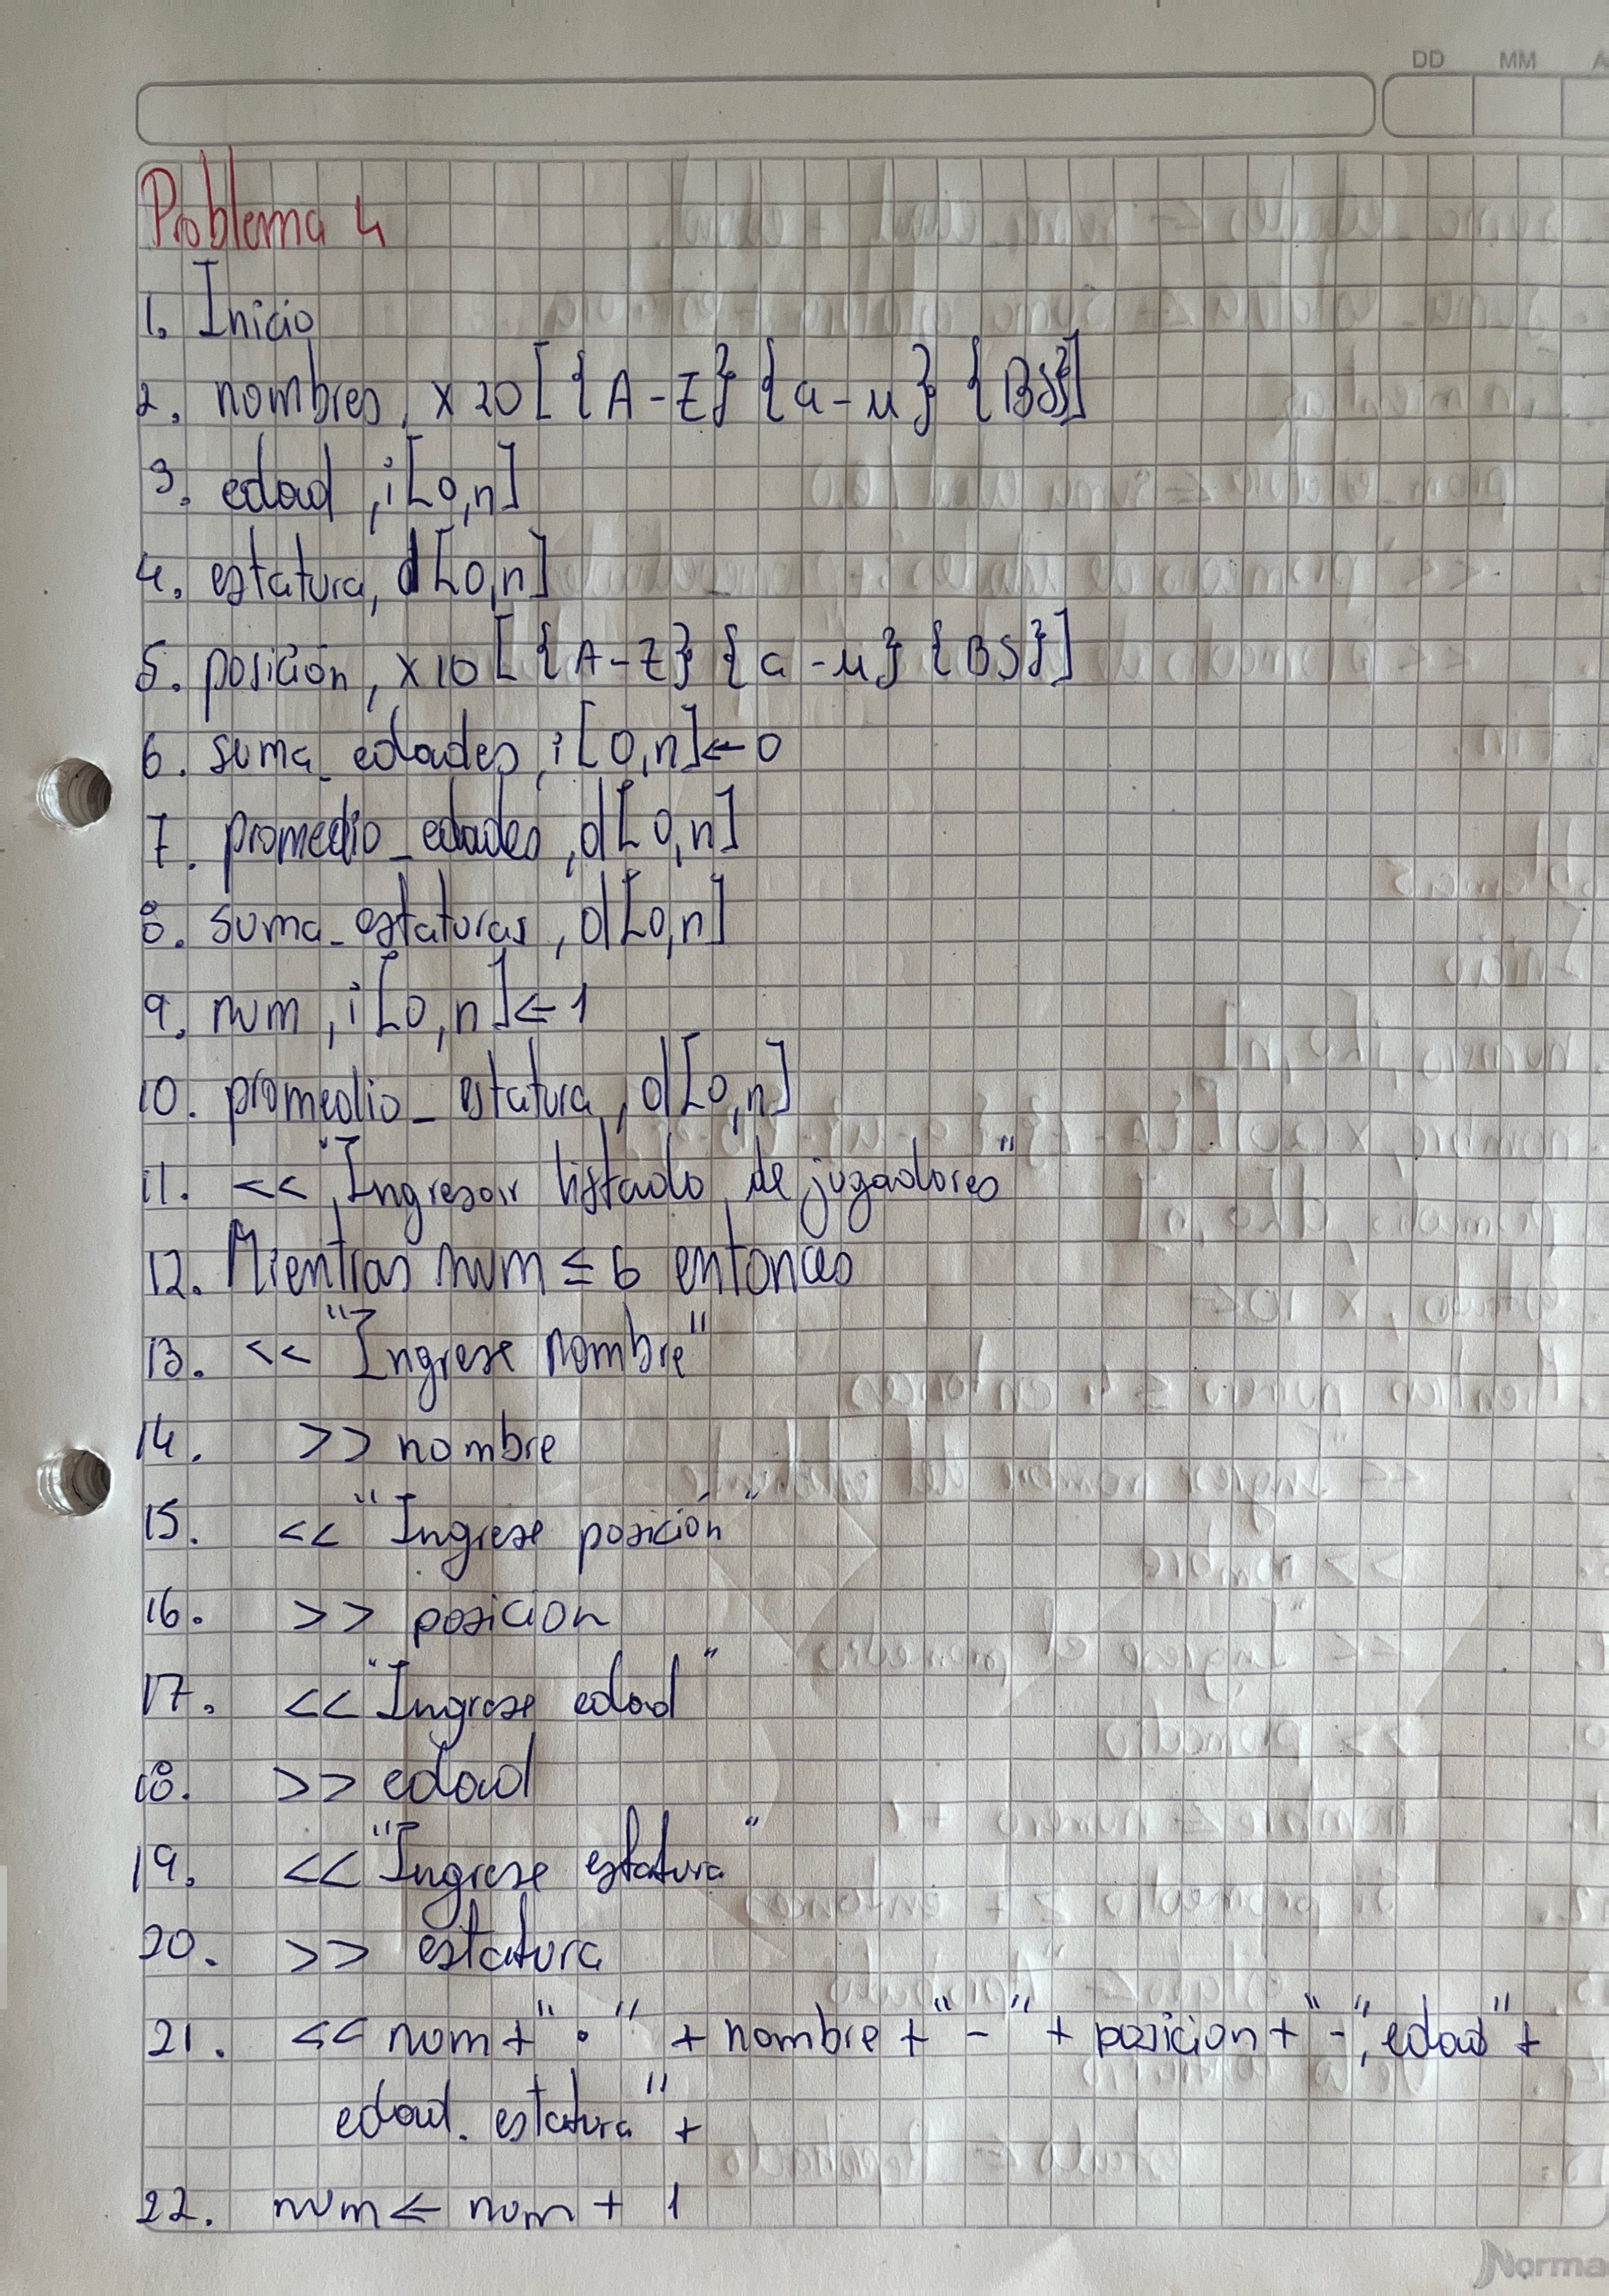 DD MM A
Problema 4
1. Inicio
2. nombres, x20 [{A-Z} {a-u} {BS}]
3. edad, i[0,n]
4. estatura, d[0,n]
5. posición, x10 [{A-Z} {a-u} {BS}]
6. suma_edades, i[0,n]←0
7. promedio_edades, d[0,n]
8. suma_estaturas, d[0,n]
9. num, i[0,n]←1
10. promedio_estatura, d[0,n]
11. << "Ingresar listado de jugadores"
12. Mientras num ≤ 6 entonces
13. << "Ingrese nombre"
14. >> nombre
15. << "Ingrese posición"
16. >> posicion
17. << "Ingrese edad"
18. >> edad
19. << "Ingrese estatura"
20. >> estatura
21. << num + "." + nombre + "-" + posicion + "-", edad" +
edad. estatura" +
22. num ← num + 1
Norma